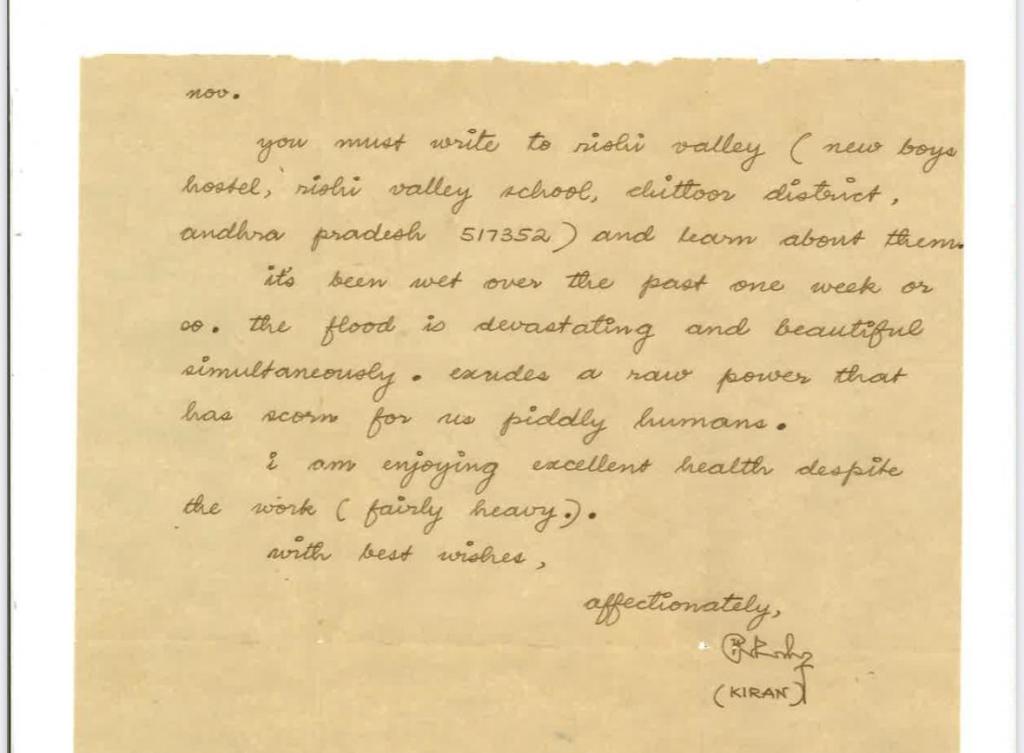 nov.
you must write to rishi valley ( new boys
hostel, rishi valley school, chittoor district,
andhra pradesh 517352 ) and learn about them.
it's been wet over the past one week or
so. the flood is devastating and beautiful
simultaneously. exudes a raw power that
has scorn for us piddly humans.
i am enjoying excellent health despite
the work ( fairly heavy.).
with best wishes,
affectionately,
(KIRAN)